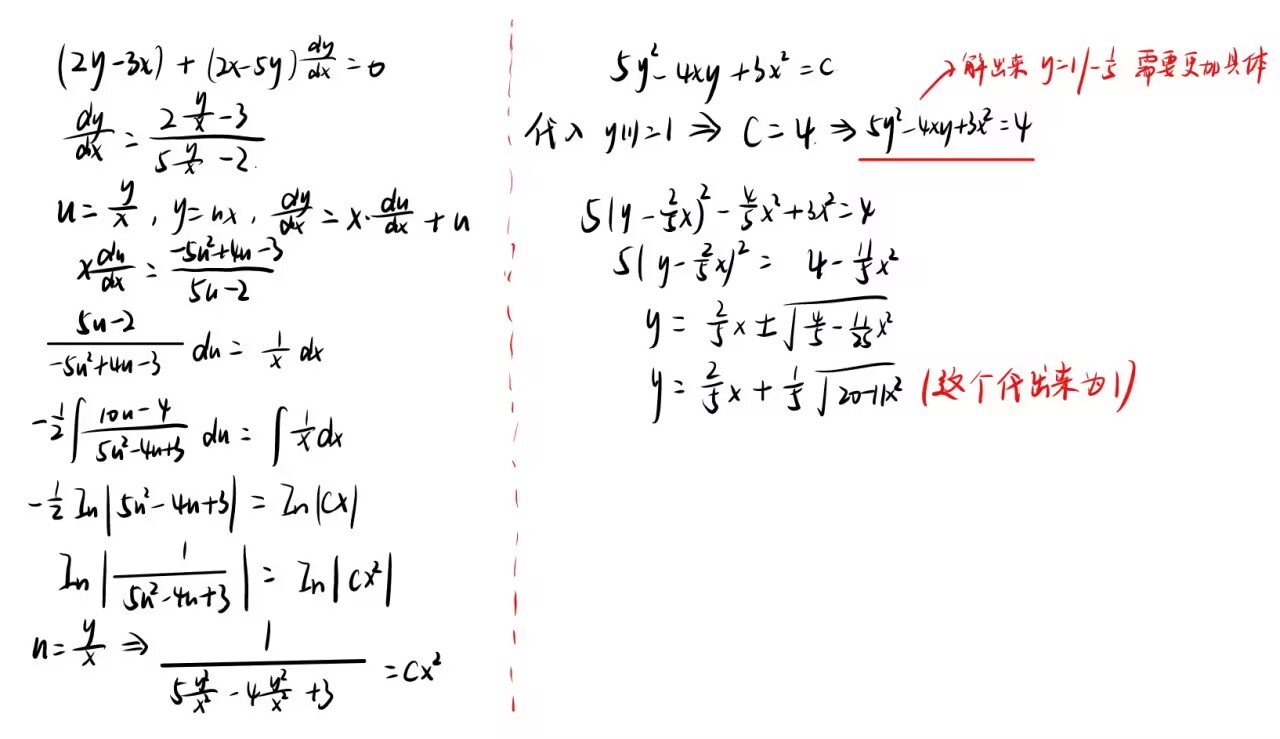 (2y-3x) + (2x-5y) dy/dx = 0
dy/dx = (2 y/x - 3)/(5 y/x - 2)
u = y/x , y = ux , dy/dx = x · du/dx + u
x du/dx = (-5u²+4u-3)/(5u-2)
(5u-2)/(-5u²+4u-3) du = 1/x dx
-1/2 ∫ (10u-4)/(5u²-4u+3) du = ∫ 1/x dx
-1/2 In|5u²-4u+3| = In|Cx|
In|1/(5u²-4u+3)| = In|Cx²|
u = y/x ⇒ 1/(5 y²/x² - 4 y²/x² + 3) = Cx²
5y² - 4xy + 3x² = C
→解出来 y=1/-1/5 需要更加具体
代入 y(1)=1 ⇒ C = 4. ⇒ 5y²-4xy+3x²=4
5(y - 2/5 x)² - 4/5 x² + 3x² = 4
5(y - 2/5 x)² = 4 - 11/5 x²
y = 2/5 x ± √(4/5 - 11/25 x²)
y = 2/5 x + 1/5 √(20-11x²) (这个代出来为1)